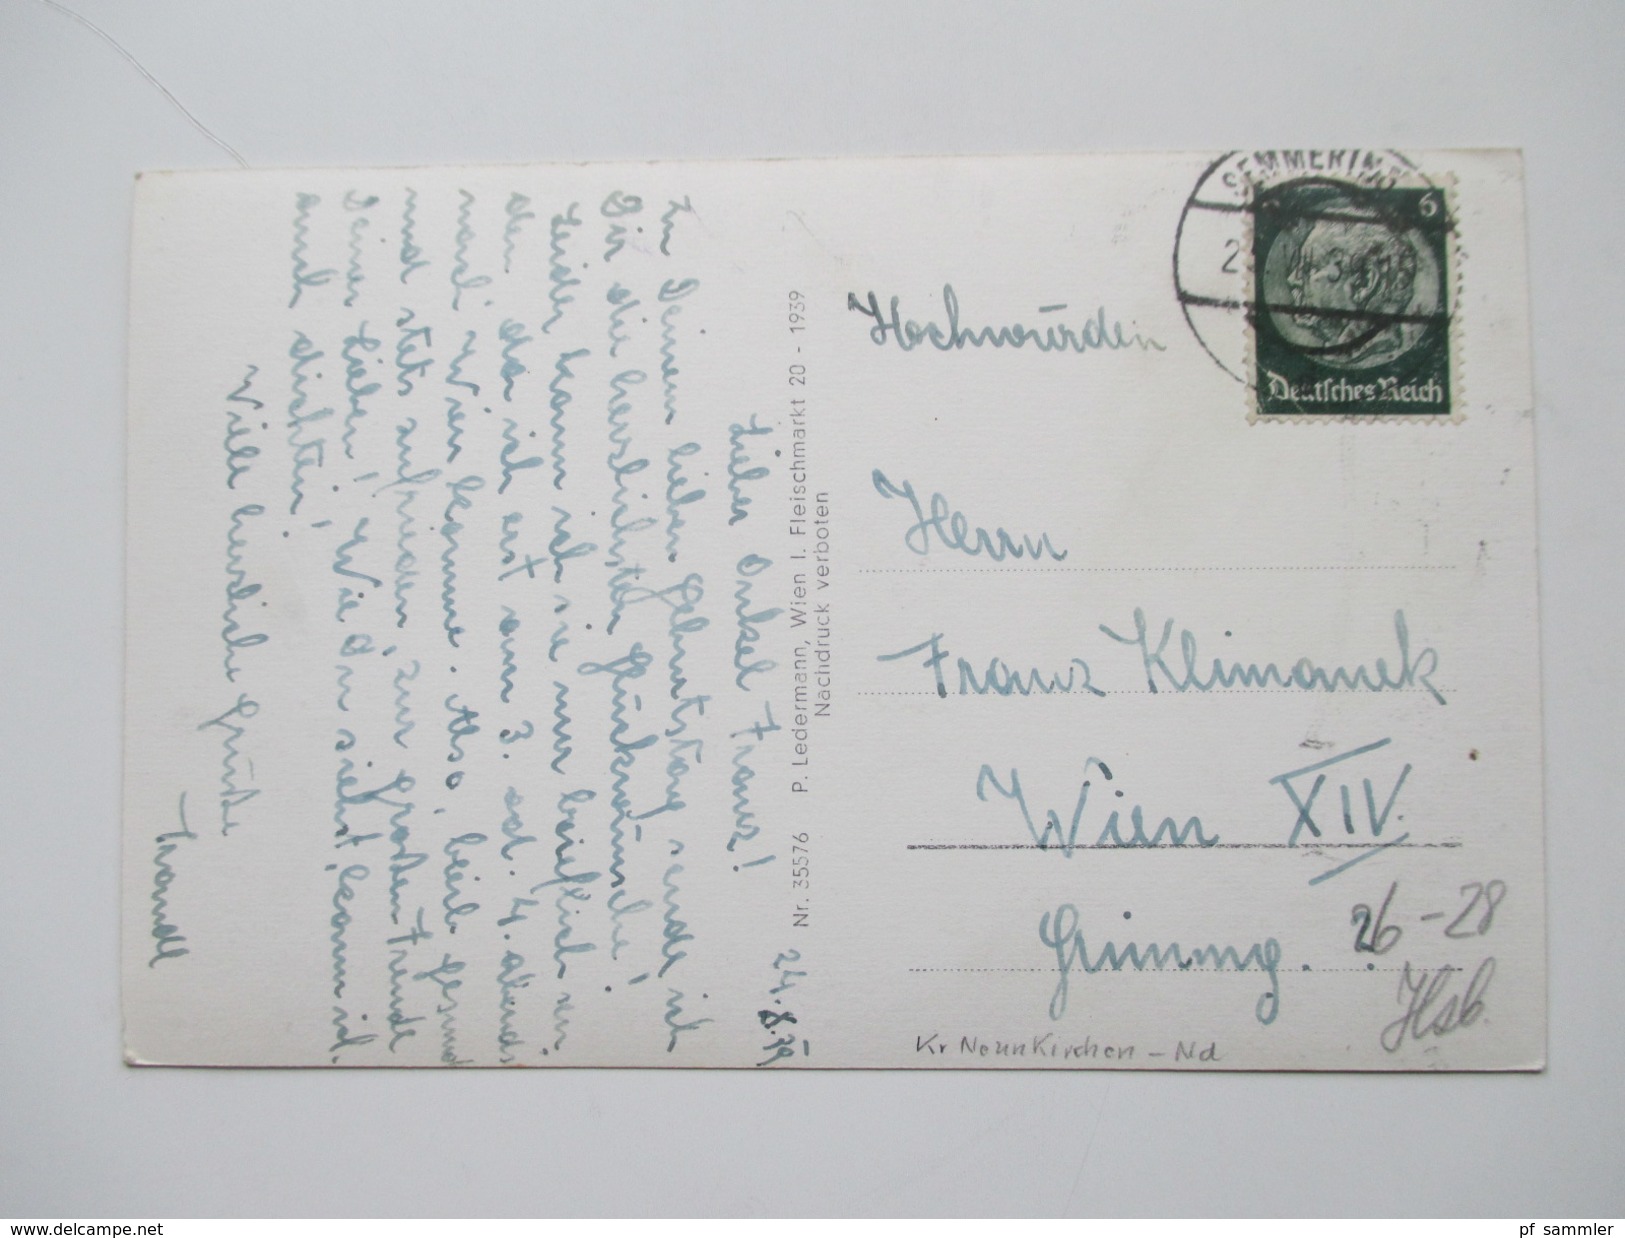 24.8.39
Lieber Onkel Franz!
Zu Deinem lieben Geburtstag sende ich
Dir die herzlichsten Glückwünsche!
Leider kann ich sie nur brieflich
den, da ich erst am 3. od. 4. abends
nach Wien komme. Also, bleib gesund
und stets zufrieden, zur großen Freude
Deiner Lieben! Wie Du siehst, kann ich
auch dichten!
Viele herzliche Grüße
Trandl
Nr. 35576 P. Ledermann, Wien I. Fleischmarkt 20 - 1939
Nachdruck verboten
SEMMERING
6
Deutsches Reich
Hochwürden
Herrn
Franz Klimanek
Wien XIV.
26-28
Hsb.
Kr Neunkirchen - Nd
www.delcampe.net
pf_sammler